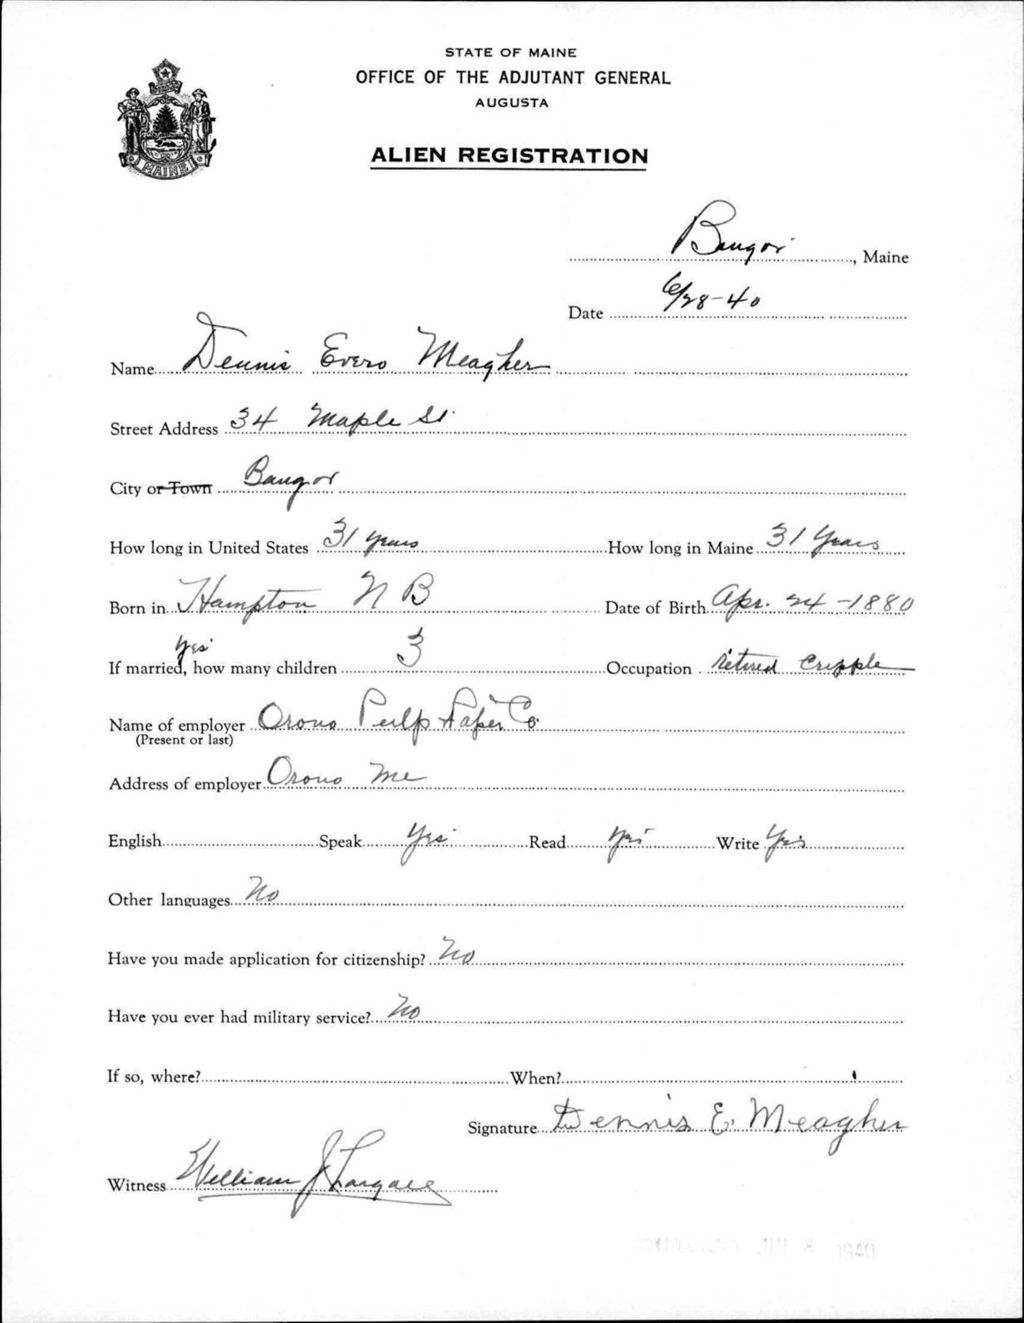 STATE OF MAINE
OFFICE OF THE ADJUTANT GENERAL
AUGUSTA
MAINE
ALIEN REGISTRATION
Bangor, Maine
Date 6/28-40
Name Dennis Evero Meagher
Street Address 34 Maple St.
City or Town Bangor
How long in United States 31 years How long in Maine 31 Years
Born in Hampton N B Date of Birth Apr. 24-1880
Yes
If married, how many children 3 Occupation retired cripple
Name of employer Orono Pulp & Paper Co.
(Present or last)
Address of employer Orono Me
English Speak Yes Read Yes Write Yes
Other languages No
Have you made application for citizenship? No
Have you ever had military service? No
If so, where? When?
Signature Dennis E. Meagher
Witness William J
1940